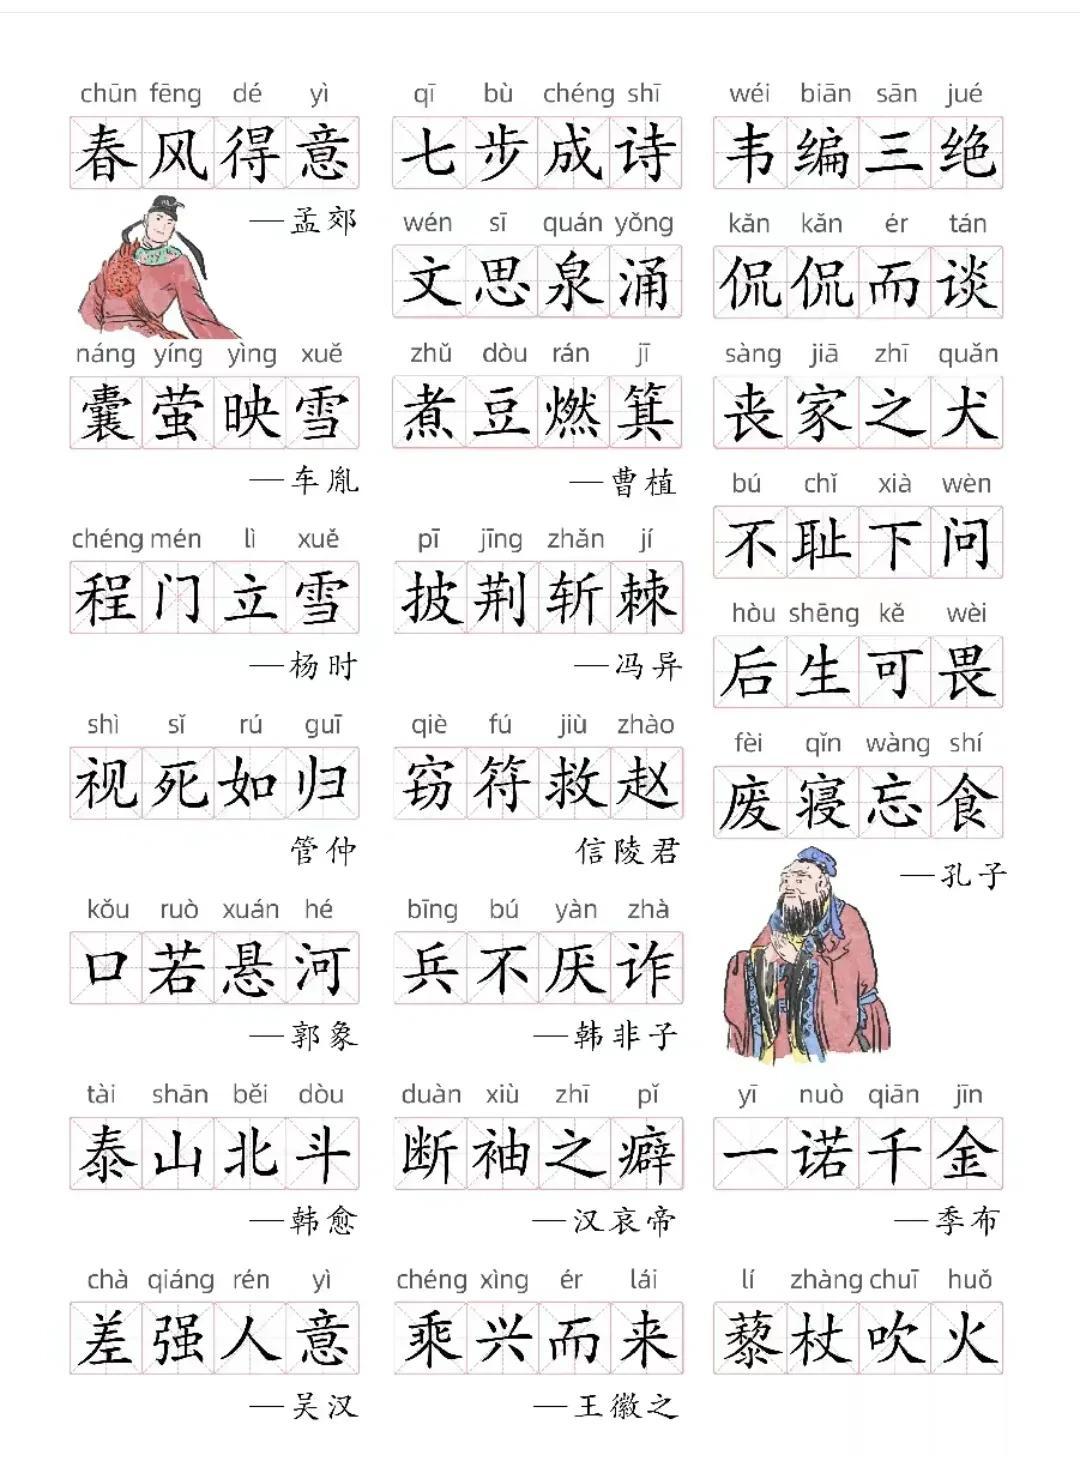 chūn fēng dé yì
春风得意
—孟郊
náng yíng yìng xuě
囊萤映雪
—车胤
chéng mén lì xuě
程门立雪
—杨时
shì sǐ rú guī
视死如归
管仲
kǒu ruò xuán hé
口若悬河
—郭象
tài shān běi dòu
泰山北斗
—韩愈
chà qiáng rén yì
差强人意
—吴汉
qī bù chéng shī
七步成诗
wén sī quán yǒng
文思泉涌
zhǔ dòu rán jī
煮豆燃箕
—曹植
pī jīng zhǎn jí
披荆斩棘
—冯异
qiè fú jiù zhào
窃符救赵
信陵君
bīng bú yàn zhà
兵不厌诈
—韩非子
duàn xiù zhī pǐ
断袖之癖
—汉哀帝
chéng xìng ér lái
乘兴而来
—王徽之
wéi biān sān jué
韦编三绝
kǎn kǎn ér tán
侃侃而谈
sàng jiā zhī quǎn
丧家之犬
bú chǐ xià wèn
不耻下问
hòu shēng kě wèi
后生可畏
fèi qǐn wàng shí
废寝忘食
—孔子
yī nuò qiān jīn
一诺千金
—季布
lí zhàng chuī huǒ
藜杖吹火